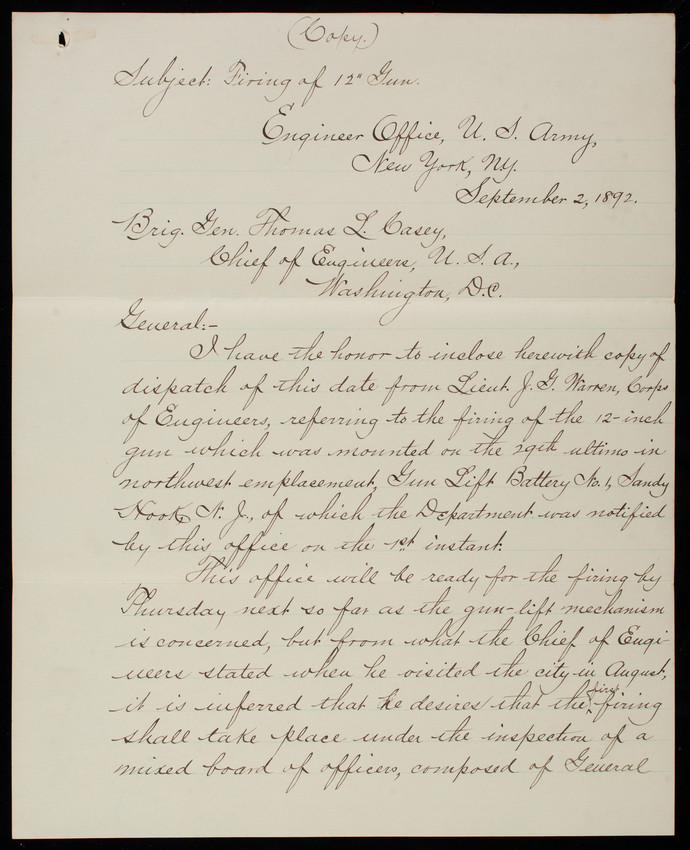 (Copy.)
Subject: Firing of 12" Gun.
Engineer Office, U. S. Army,
New York, N.Y.
September 2, 1892.
Brig. Gen. Thomas L. Casey,
Chief of Engineers, U. S. A.,
Washington, D.C.
General:-
I have the honor to inclose herewith copy of
dispatch of this date from Lieut. J. G. Warren, Corps
of Engineers, referring to the firing of the 12-inch
gun which was mounted on the 29th ultimo in
northwest emplacement, Gun Lift Battery No. 1, Sandy
Hook, N. J., of which the Department was notified
by this office on the 1st instant.
This office will be ready for the firing by
Thursday next so far as the gun-lift mechanism
is concerned, but from what the Chief of Engi-
neers stated when he visited the city in August,
it is inferred that he desires that the first firing
shall take place under the inspection of a
mixed board of officers, composed of General